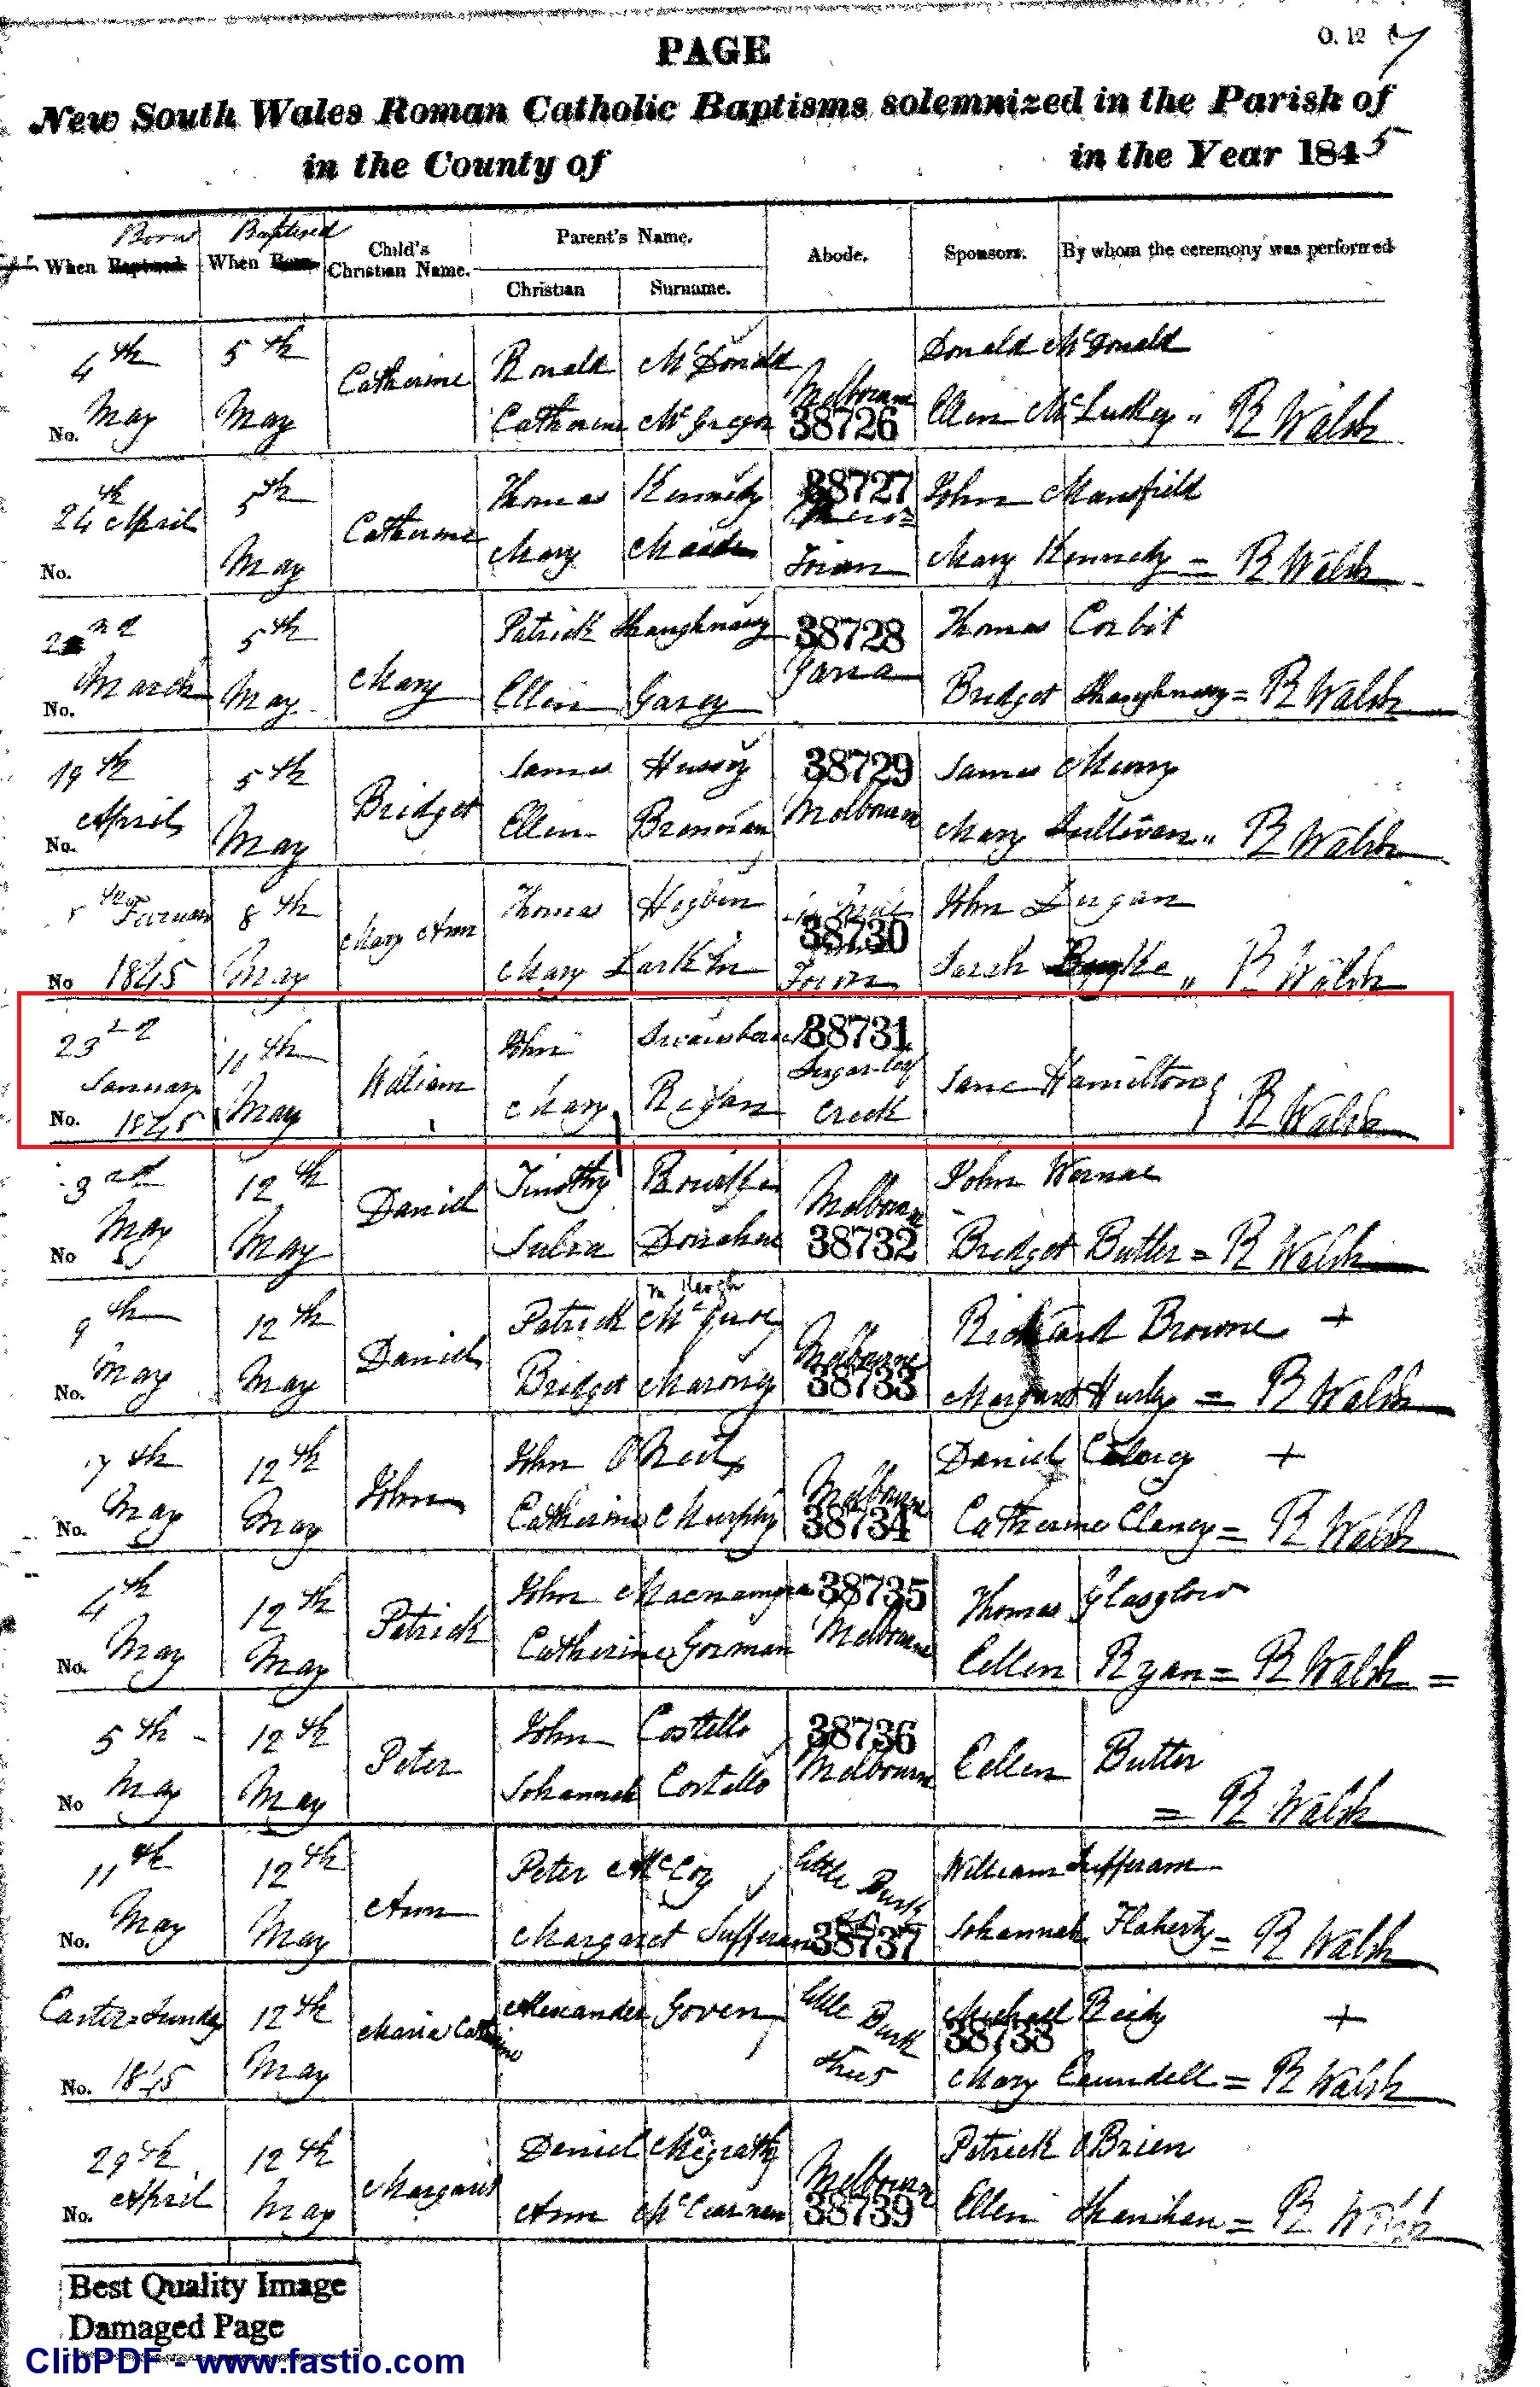 O. 12 7
PAGE
New South Wales Roman Catholic Baptisms solemnized in the Parish of
in the County of in the Year 1845
Born Baptised
When Baptised When Born Child's Christian Name. Parent's Name. Abode. Sponsors. By whom the ceremony was performed
Christian Surname.
4th 5th Catherine Ronald McDonald Melbourne Donald McDonald
No. May May Catherine McGregor 38726 Ellen McLuskey " R Walsh
24th April 5th Catherine Thomas Kennedy 38727 John Mansfield
No. May Mary Town Mary Kennedy = R Walsh
22nd 5th Mary Patrick Shaughnessy 38728 Thomas Corbit
No. March May Ellen Garey Yarra Bridget Shaughnessy = R Walsh
19th 5th Bridget James Hussey 38729 James
No. April May Ellen Brennan Melbourne Mary Sullivan " R Walsh
8th Mary Ann Thomas Hogben 38730 John Dugan
No 1845 May Mary Larkin Town Sarah Burke " R Walsh
23rd 11th William John 38731 Jane Hamilton
January Sugar-loaf
No. 1845 May Mary Regan Creek R Walsh
3rd 12th Daniel Timothy Bourke Melbourne John
No May May Julia Donahue 38732 Bridget Butler = R Walsh
McKeogh
9th 12th Daniel Patrick Melbourne Richard Browne +
No. May May Bridget Marony 38733 Margaret Hurly = R Walsh
7th 12th John John O'Neil Melbourne Daniel +
No. May May Catherine Murphy 38734 Catherine Clancy = R Walsh
4th 12th Patrick John Macnamara 38735 Thomas Glasglow
No. May May Catherine Gorman Melbourne Ellen Ryan = R Walsh =
5th 12th Peter John Costello 38736 Ellen Butler
No May May Johannah Costello Melbourne = R Walsh
11th 12th Ann Peter McCoy Little Burk William Sufferam
No. May May Margaret 38737 Johannah Flaherty = R Walsh
Easter-Sunday 12th Maria Catherine Alexander Goven Little Burk Michael Reidy +
38738
No. 1845 May Mary Cundell = R Walsh
29th 12th Margaret Daniel Megrath Melbourne Patrick O'Brien
No. April May Ann 38739 Ellen Shanihan = R Walsh
Best Quality Image
Damaged Page
ClibPDF - www.fastio.com